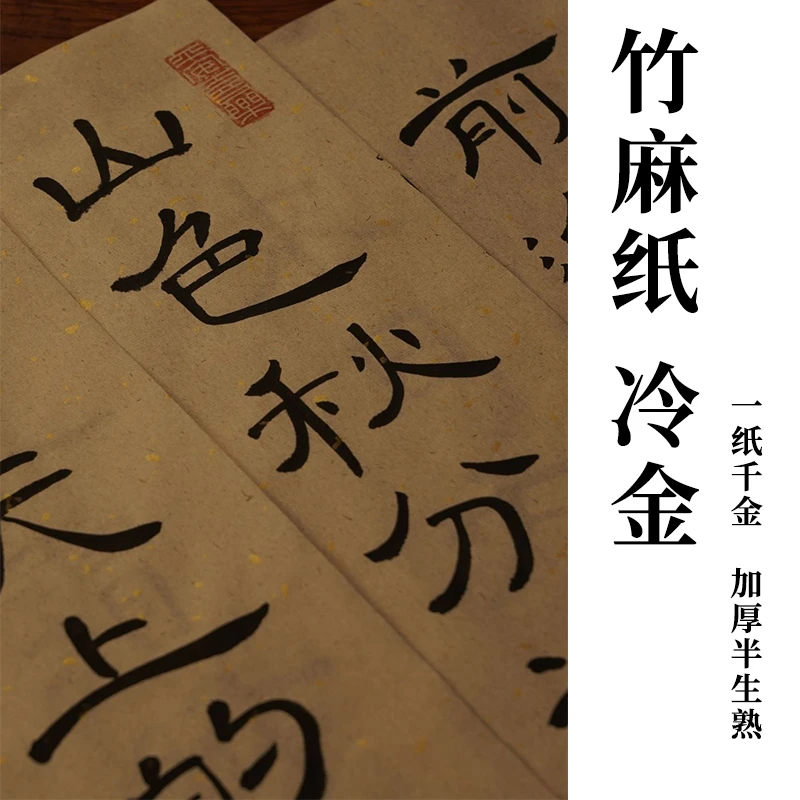 竹麻纸 冷金
一纸千金 加厚半生熟
前
山色秋分
天上的